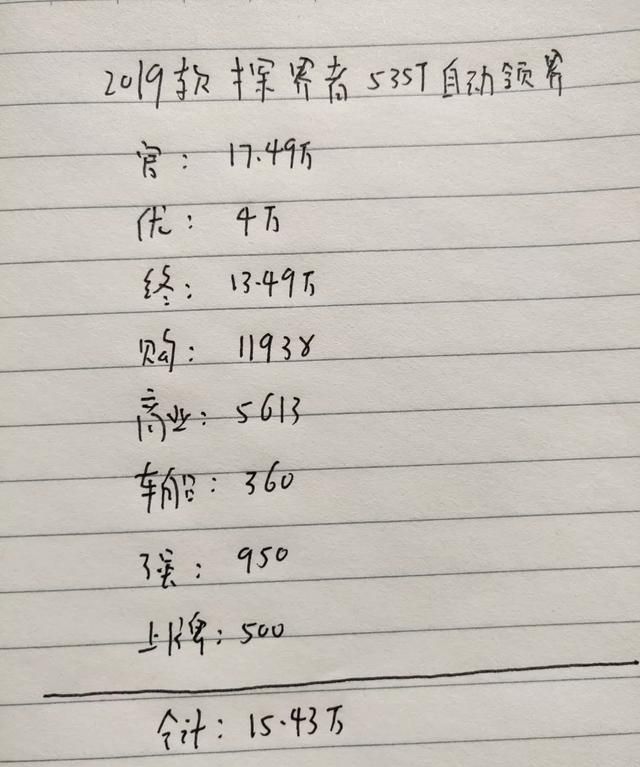 2019款 探界者 535T 自动领界
官: 17.49万
优: 4万
终: 13.49万
购: 11938
商业: 5613
车船: 360
强: 950
上牌: 500
合计: 15.43万